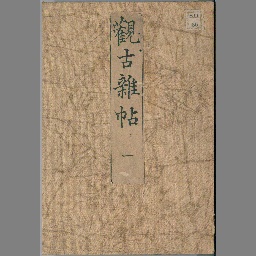 觀古雜帖
一